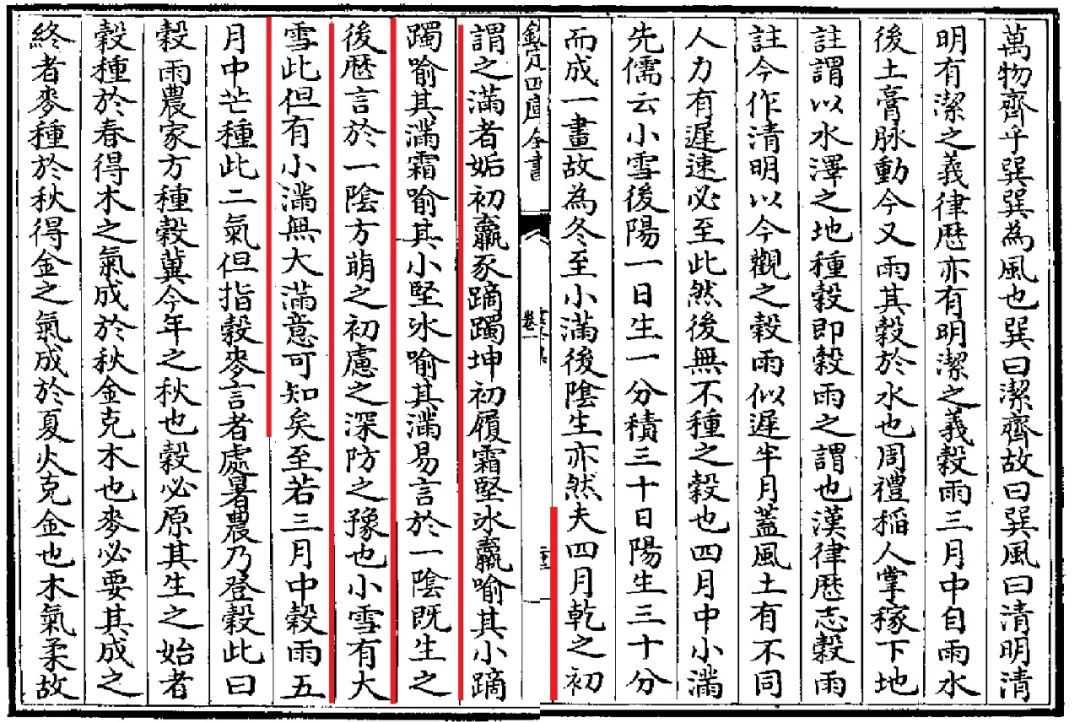 萬物齊乎巽巽為風也巽曰潔齊故曰巽風曰清明清
明有潔之義律厯亦有明潔之義穀雨三月中自雨水
後土膏脉動今又雨其穀於水也周禮稻人掌稼下地
註謂以水澤之地種穀即穀雨之謂也漢律厯志穀雨
註今作清明以今觀之穀雨似遲半月蓋風土有不同
人力有遲速必至此然後無不種之穀也四月中小滿
先儒云小雪後陽一日生一分積三十日陽生三十分
而成一畫故為冬至小滿後陰生亦然夫四月乾之初
欽定四庫全書
卷一
謂之滿者姤初羸豕蹢躅坤初履霜堅氷羸喻其小蹢
躅喻其滿霜喻其小堅氷喻其滿易言於一陰既生之
後厯言於一陰方萌之初慮之深防之豫也小雪有大
雪此但有小滿無大滿意可知矣至若三月中穀雨五
月中芒種此二氣但指穀麥言者處暑農乃登穀此曰
穀雨農家方種穀冀今年之秋也穀必原其生之始者
穀種於春得木之氣成於秋金克木也麥必要其成之
終者麥種於秋得金之氣成於夏火克金也木氣柔故